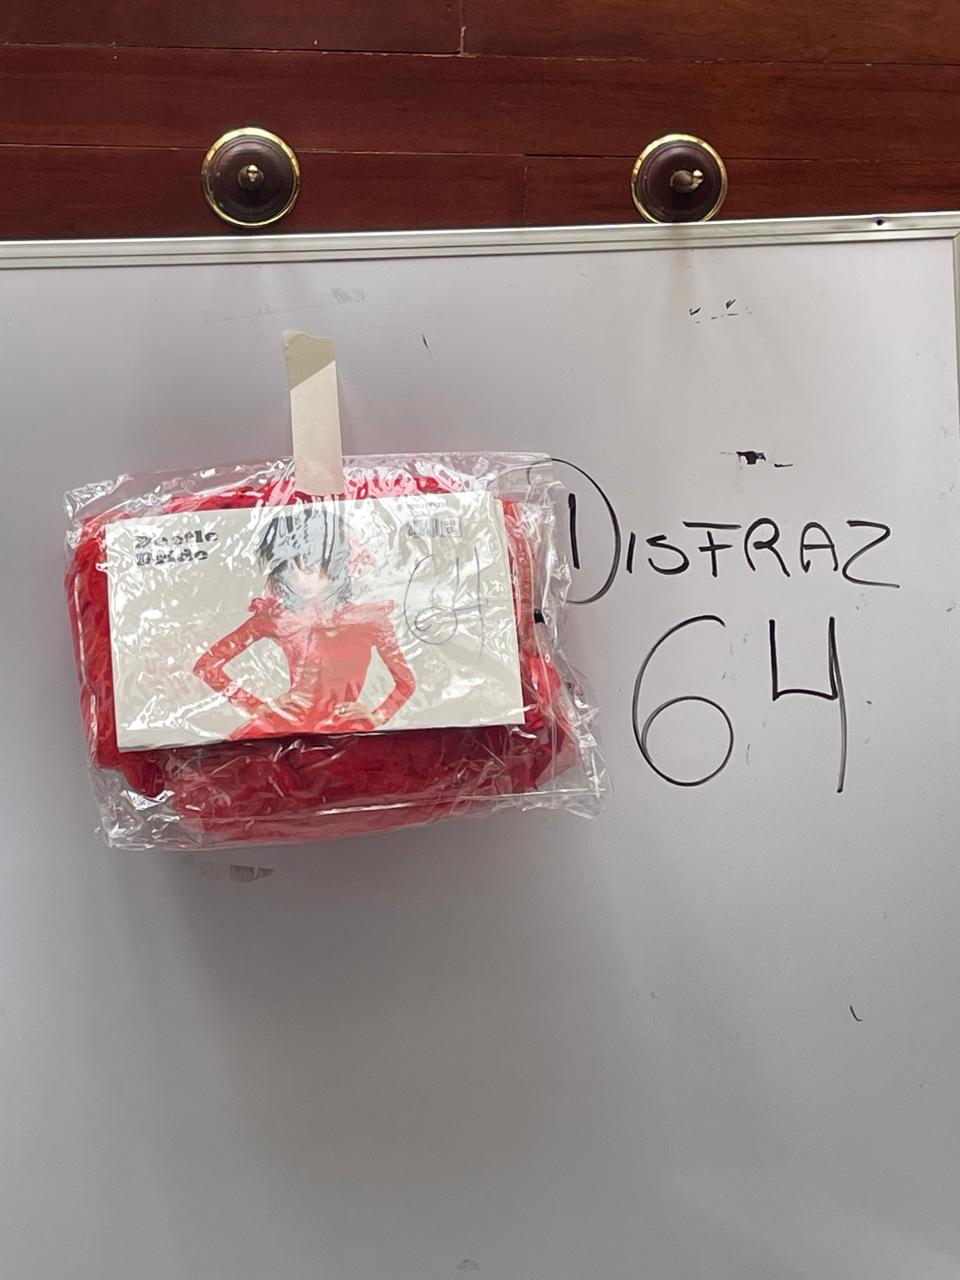 Beetle
Bride
64
DISFRAZ
64